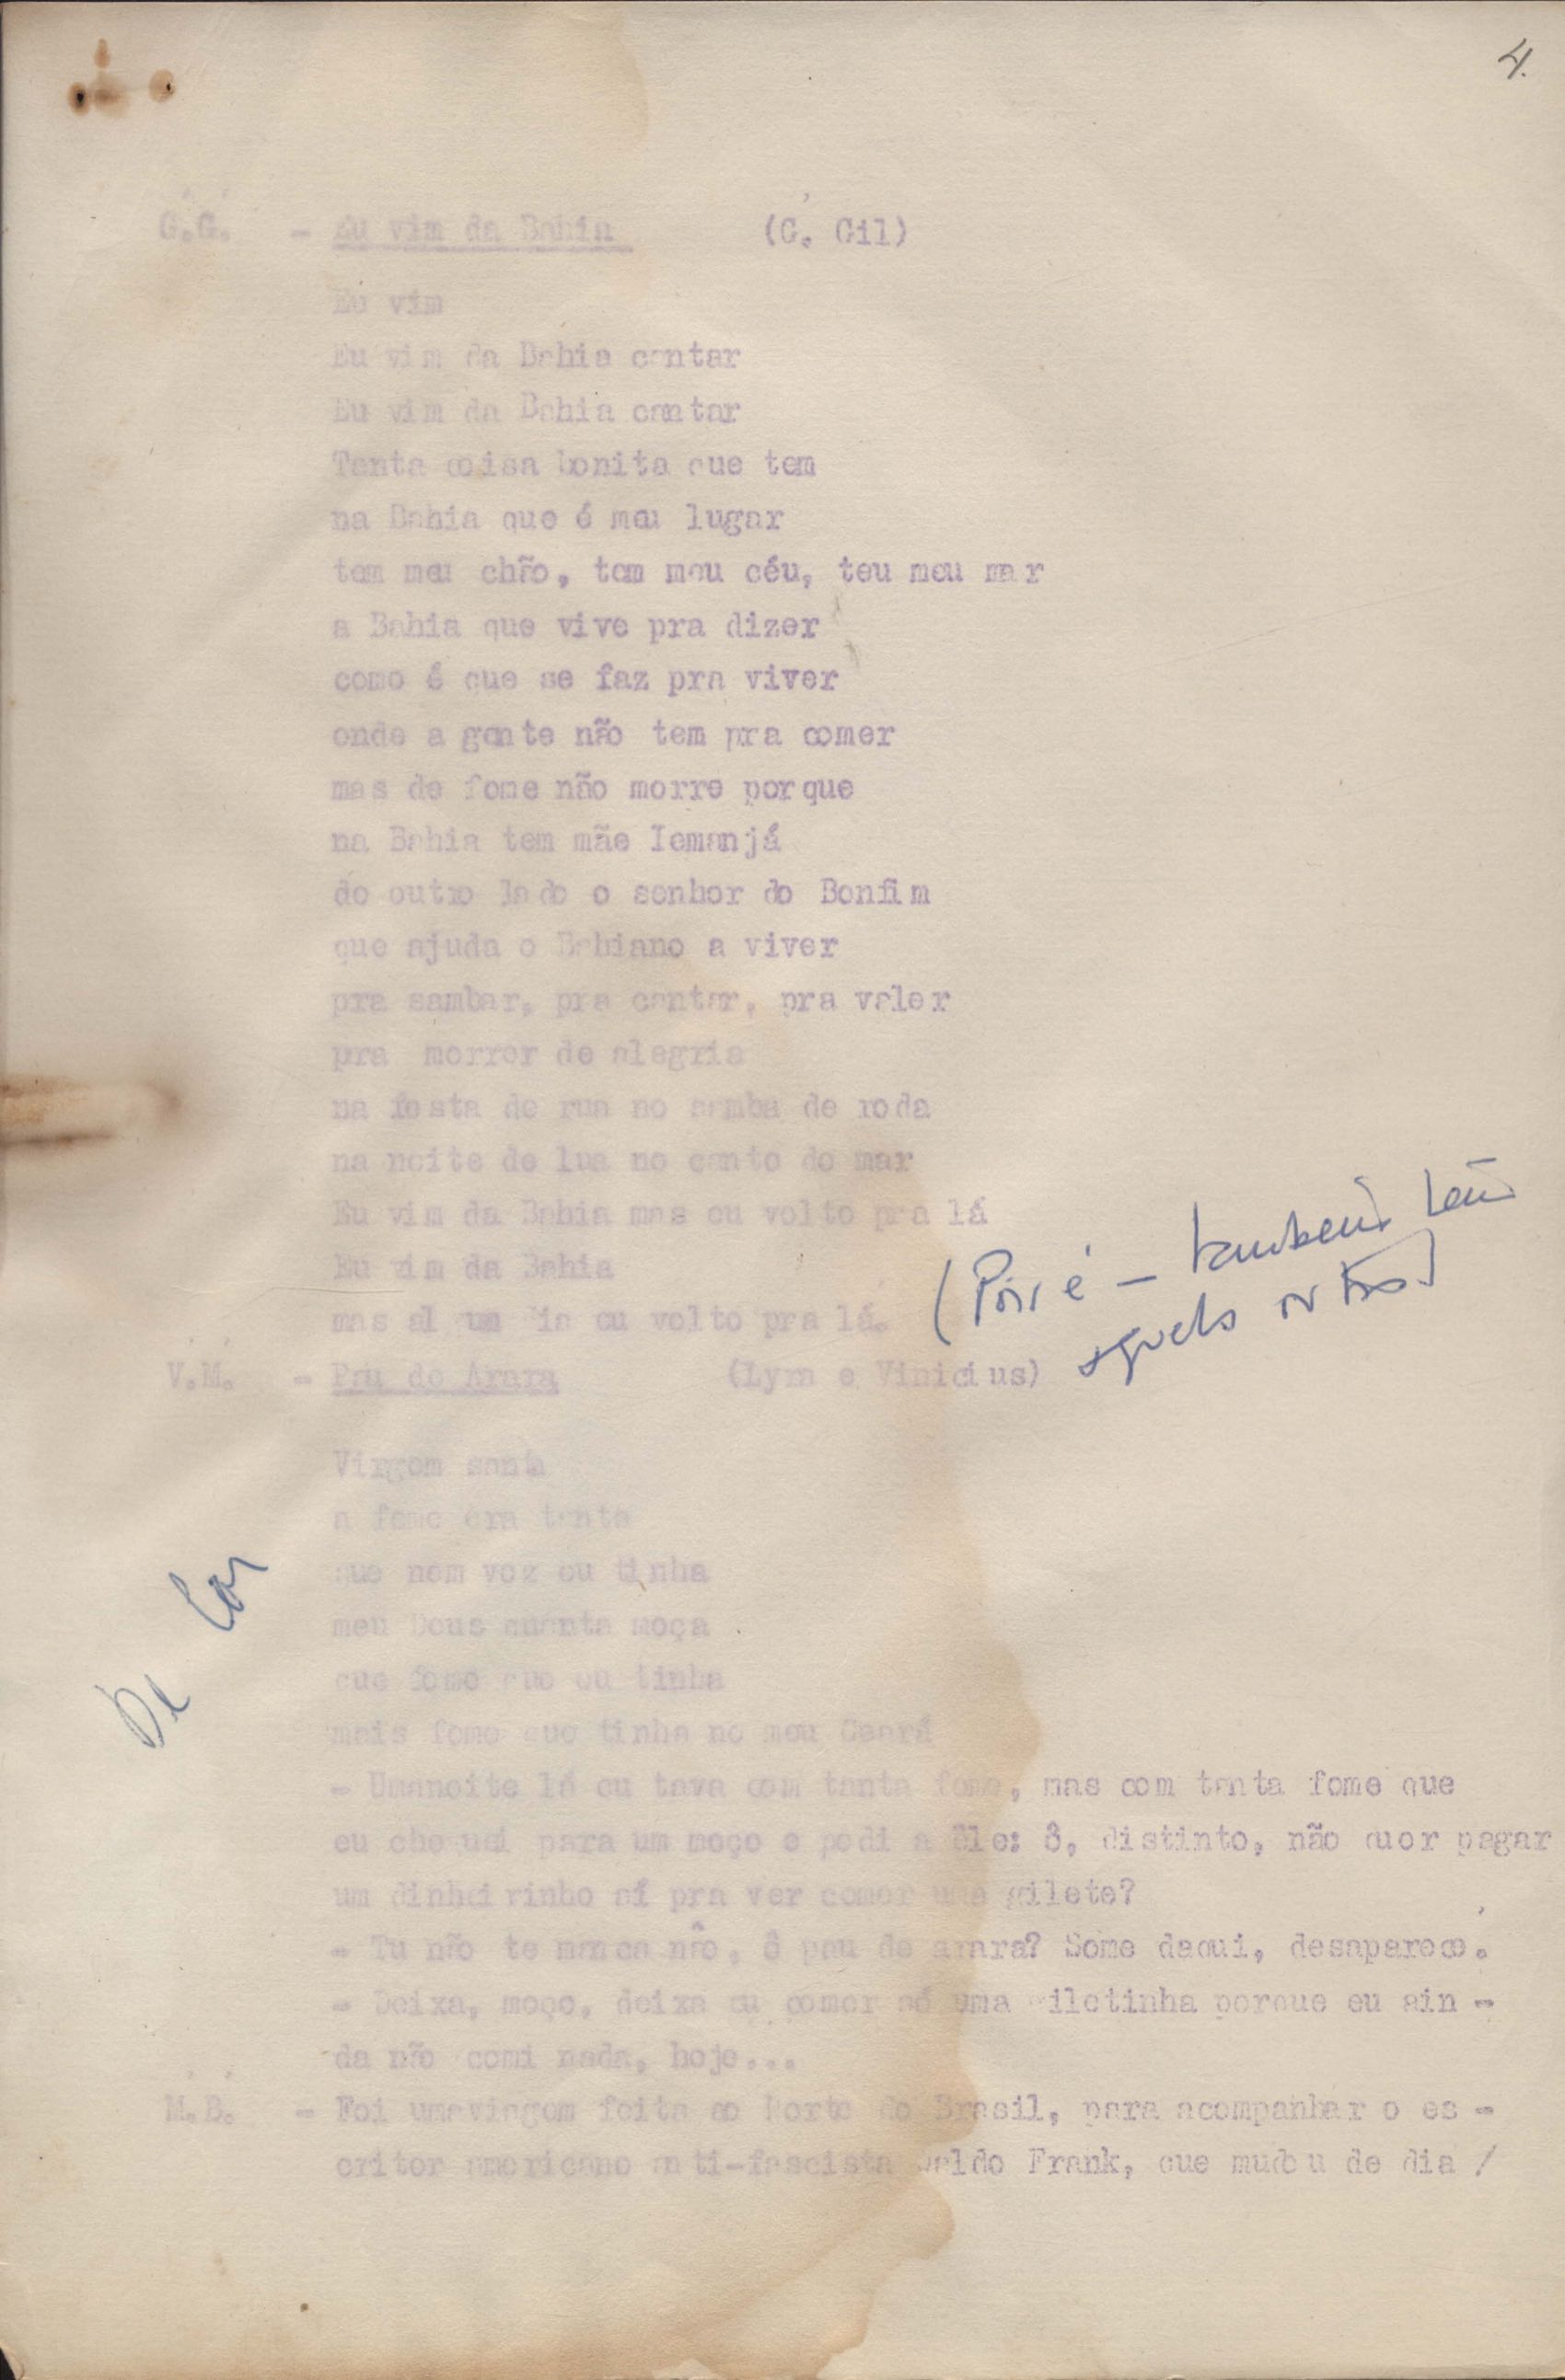 4.
G.G. - Eu vim da Bahia (G. Gil)
Eu vim
Eu vim da Bahia contar
Eu vim da Bahia cantar
Tanta coisa bonita que tem
na Bahia que é meu lugar
tem meu chão, tem meu céu, teu meu mar
a Bahia que vive pra dizer
como é que se faz pra viver
onde a gente não tem pra comer
mas de fome não morre porque
na Bahia tem mãe Iemanjá
do outro lado o senhor do Bonfim
que ajuda o Bahiano a viver
pra sambar, pra cantar, pra valer
pra morrer de alegria
na festa de rua no samba de roda
na noite de lua no canto do mar
Eu vim da Bahia mas eu volto pra lá
Eu vim da Bahia
mas algum dia eu volto pra lá.
(Pois é - também tem
outros)
V.M. - Pau de Arara (Lyra e Vinicius)
De Cor
Virgem santa
a fome era tanta
que nem voz eu tinha
meu Deus quanta moça
que fome que eu tinha
mais fome que tinha no meu Ceará
- Umanoite lá eu tava com tanta fome, mas com tanta fome que
eu cheguei para um moço e pedi a êle: ô, distinto, não quer pagar
um dinheirinho aí pra ver comer uma gilete?
- Tu não te manca não, ô pau de arara? Some daqui, desaparece.
- Deixa, moço, deixa eu comer só uma giletinha porque eu ain -
da não comi nada, hoje...
M.B. - Foi umaviagem feita ao Norte do Brasil, para acompanhar o es -
critor americano anti-fascista Waldo Frank, que mudou de dia /